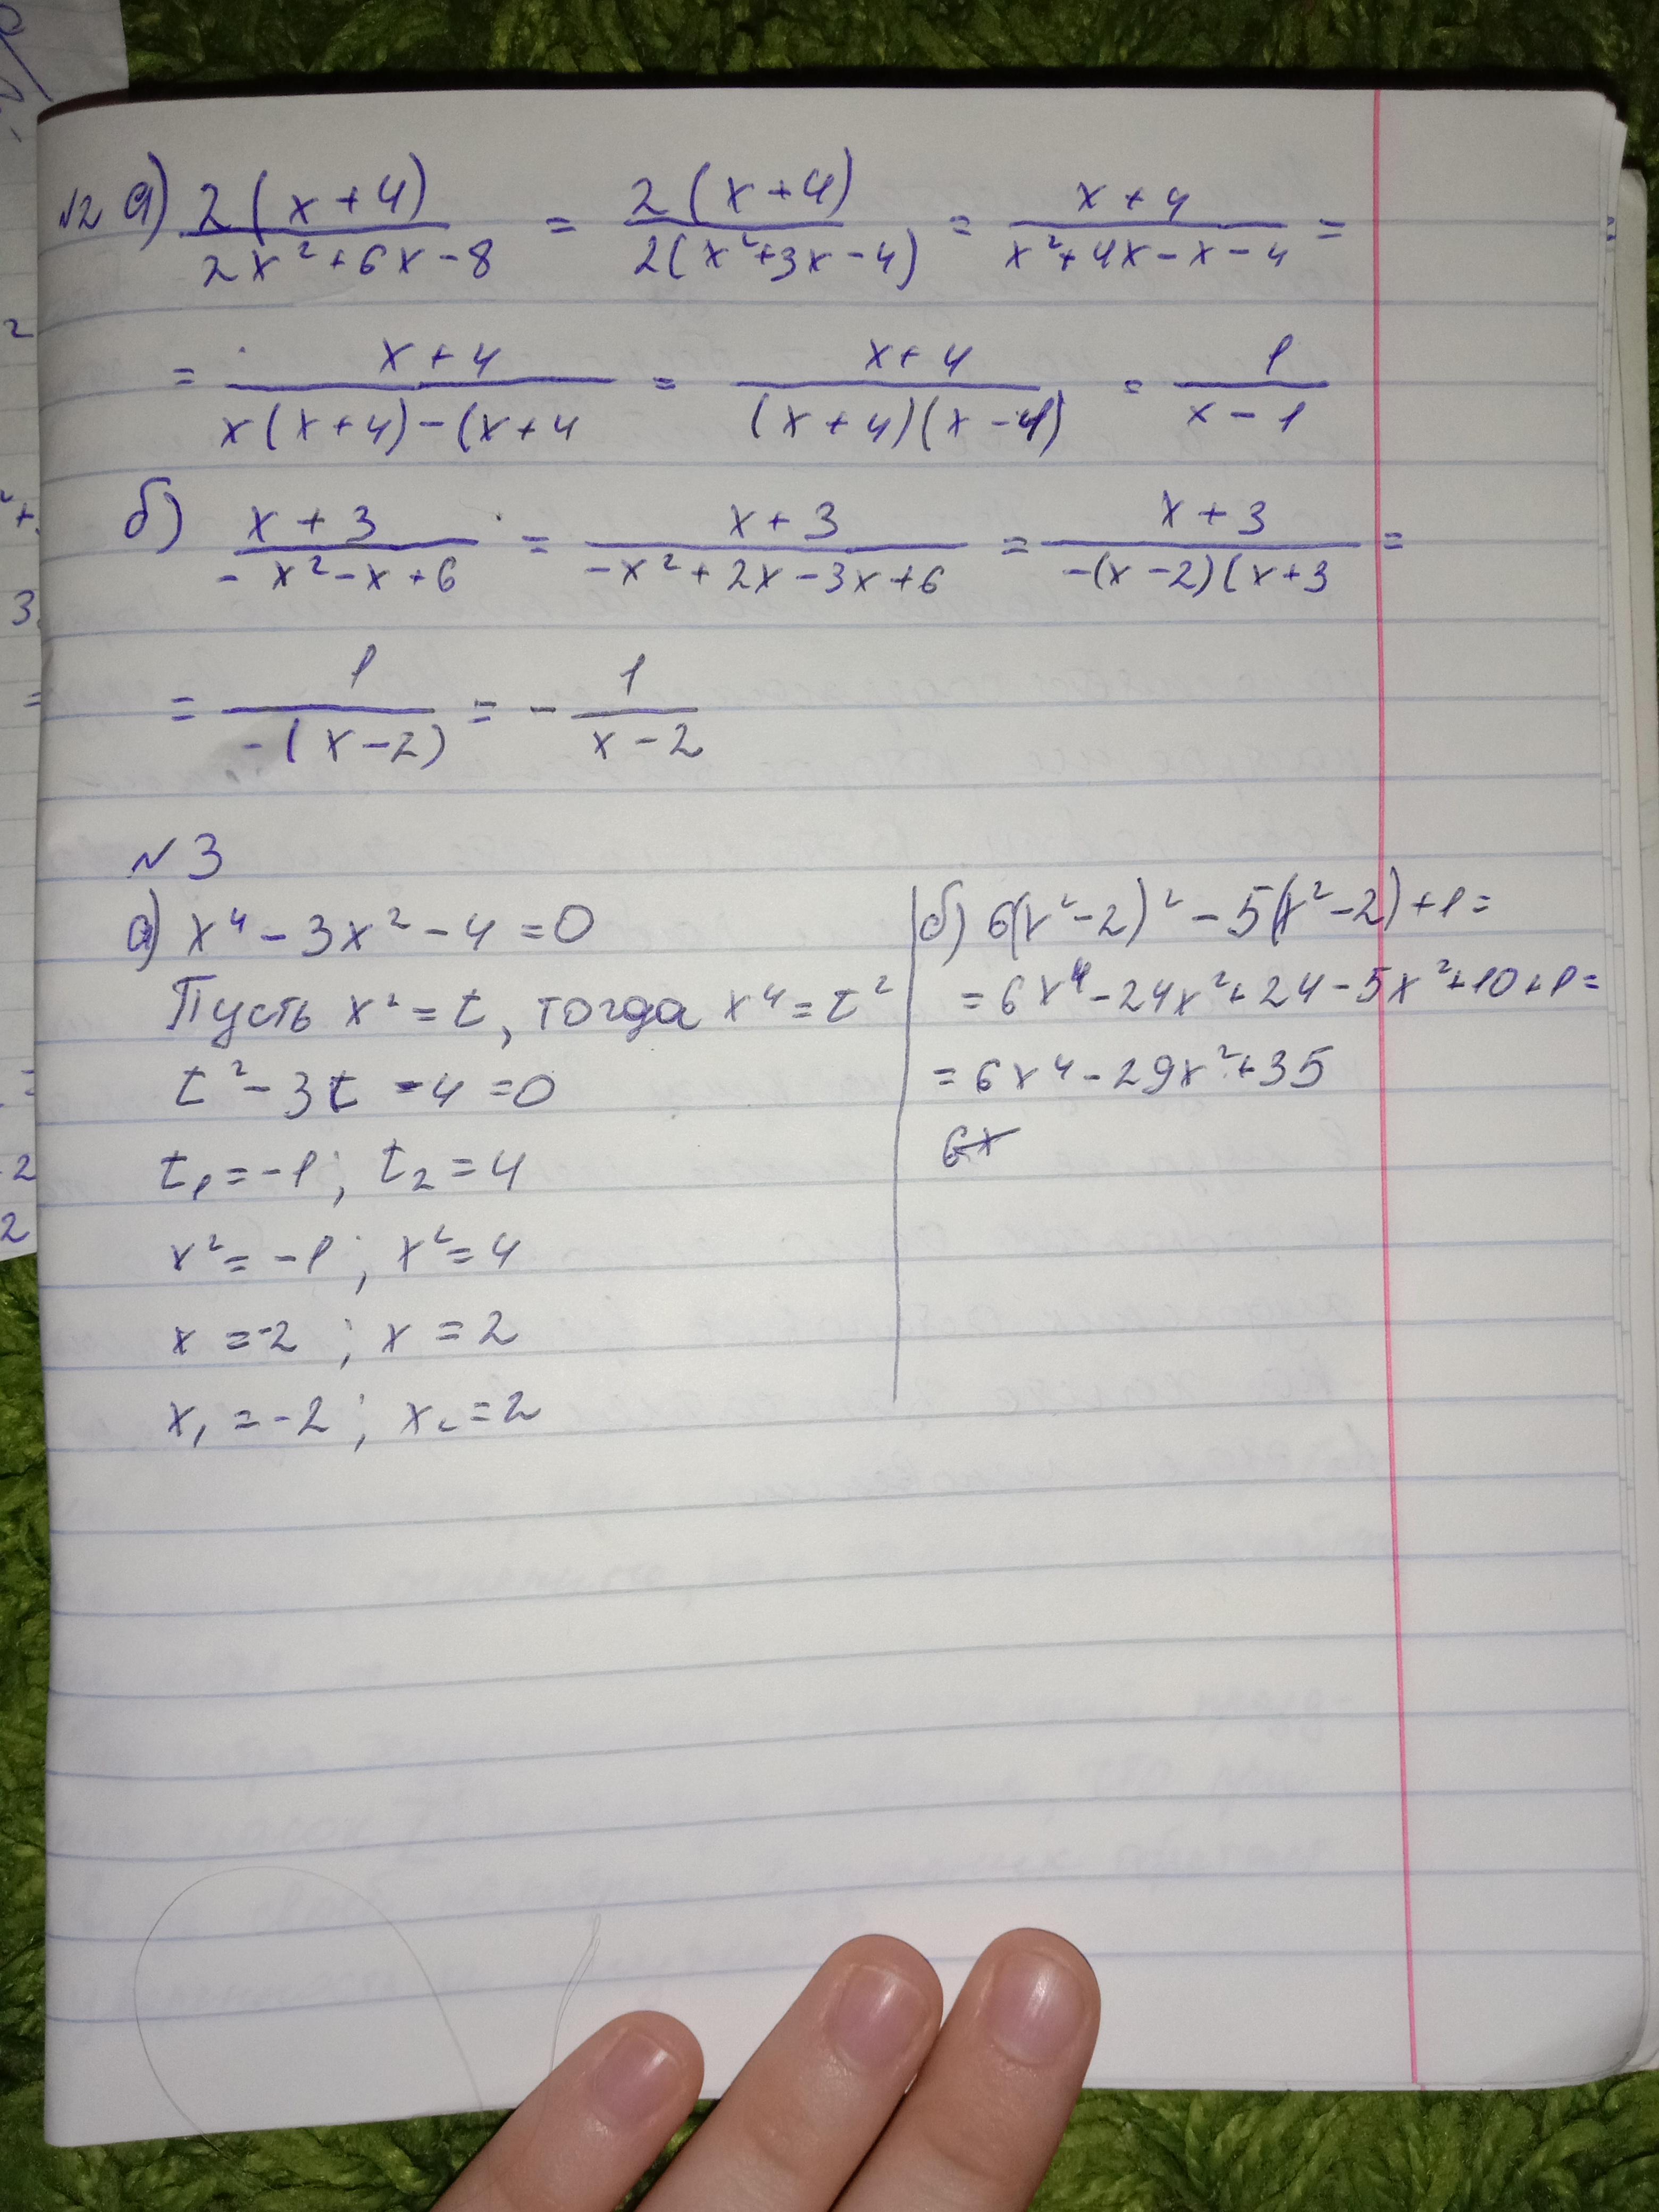 №2 а) 2(x+4)/2x²+6x-8 = 2(x+4)/2(x²+3x-4) = x+4/x²+4x-x-4 =
= x+4/x(x+4)-(x+4 = x+4/(x+4)(x-1) = 1/x-1
б) x+3/-x²-x+6 = x+3/-x²+2x-3x+6 = x+3/-(x-2)(x+3 =
= 1/-(x-2) = - 1/x-2
№3
а) x⁴-3x²-4=0
Пусть x²=t, тогда x⁴=t²
t²-3t-4=0
t₁=-1; t₂=4
x²=-1; x²=4
x=-2; x=2
x₁=-2; x₂=2
б) 6(x²-2)²-5(x²-2)+1=
=6x⁴-24x²+24-5x²+10+1=
=6x⁴-29x²+35
6x